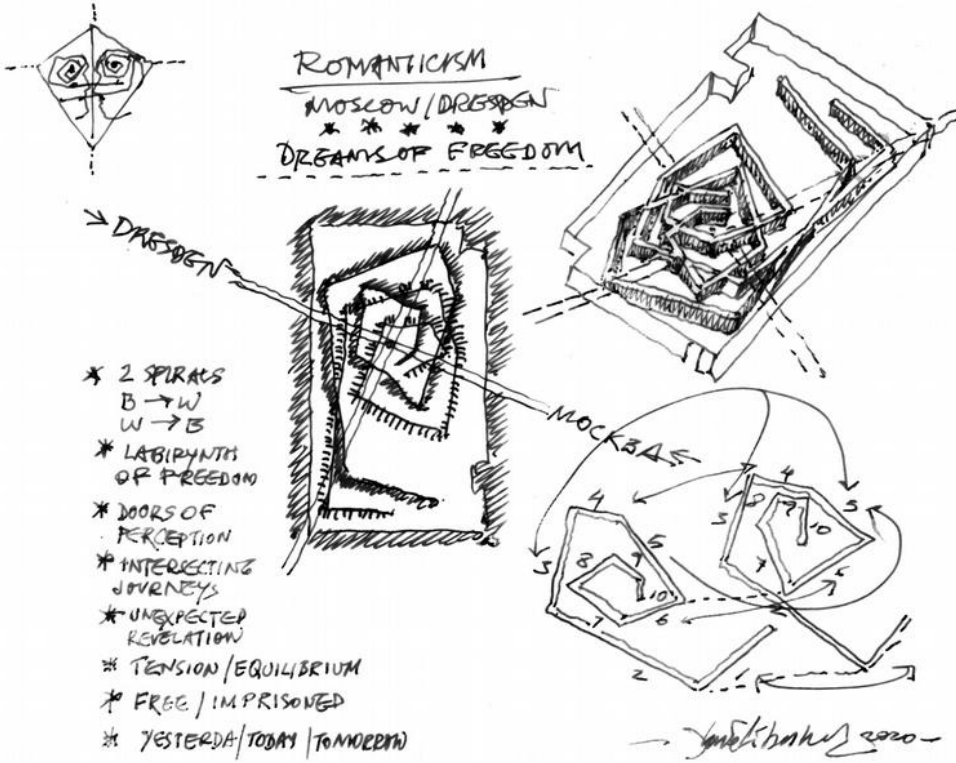 ROMANTICISM
MOSCOW/DRESDEN
* * * * *
DREAMS OF FREEDOM
→ DRESDEN
МОСКВА ←
* 2 SPIRALS
B → W
W → B
* LABIRYNTH
OF FREEDOM
* DOORS OF
PERCEPTION
* INTERSECTING
JOURNEYS
* UNEXPECTED
REVELATION
* TENSION/EQUILIBRIUM
* FREE/IMPRISONED
* YESTERDA/TODAY/TOMORROW
4
3
5
8
9
10
7
6
2
4
3
8
9
5
10
7
6
2
2020